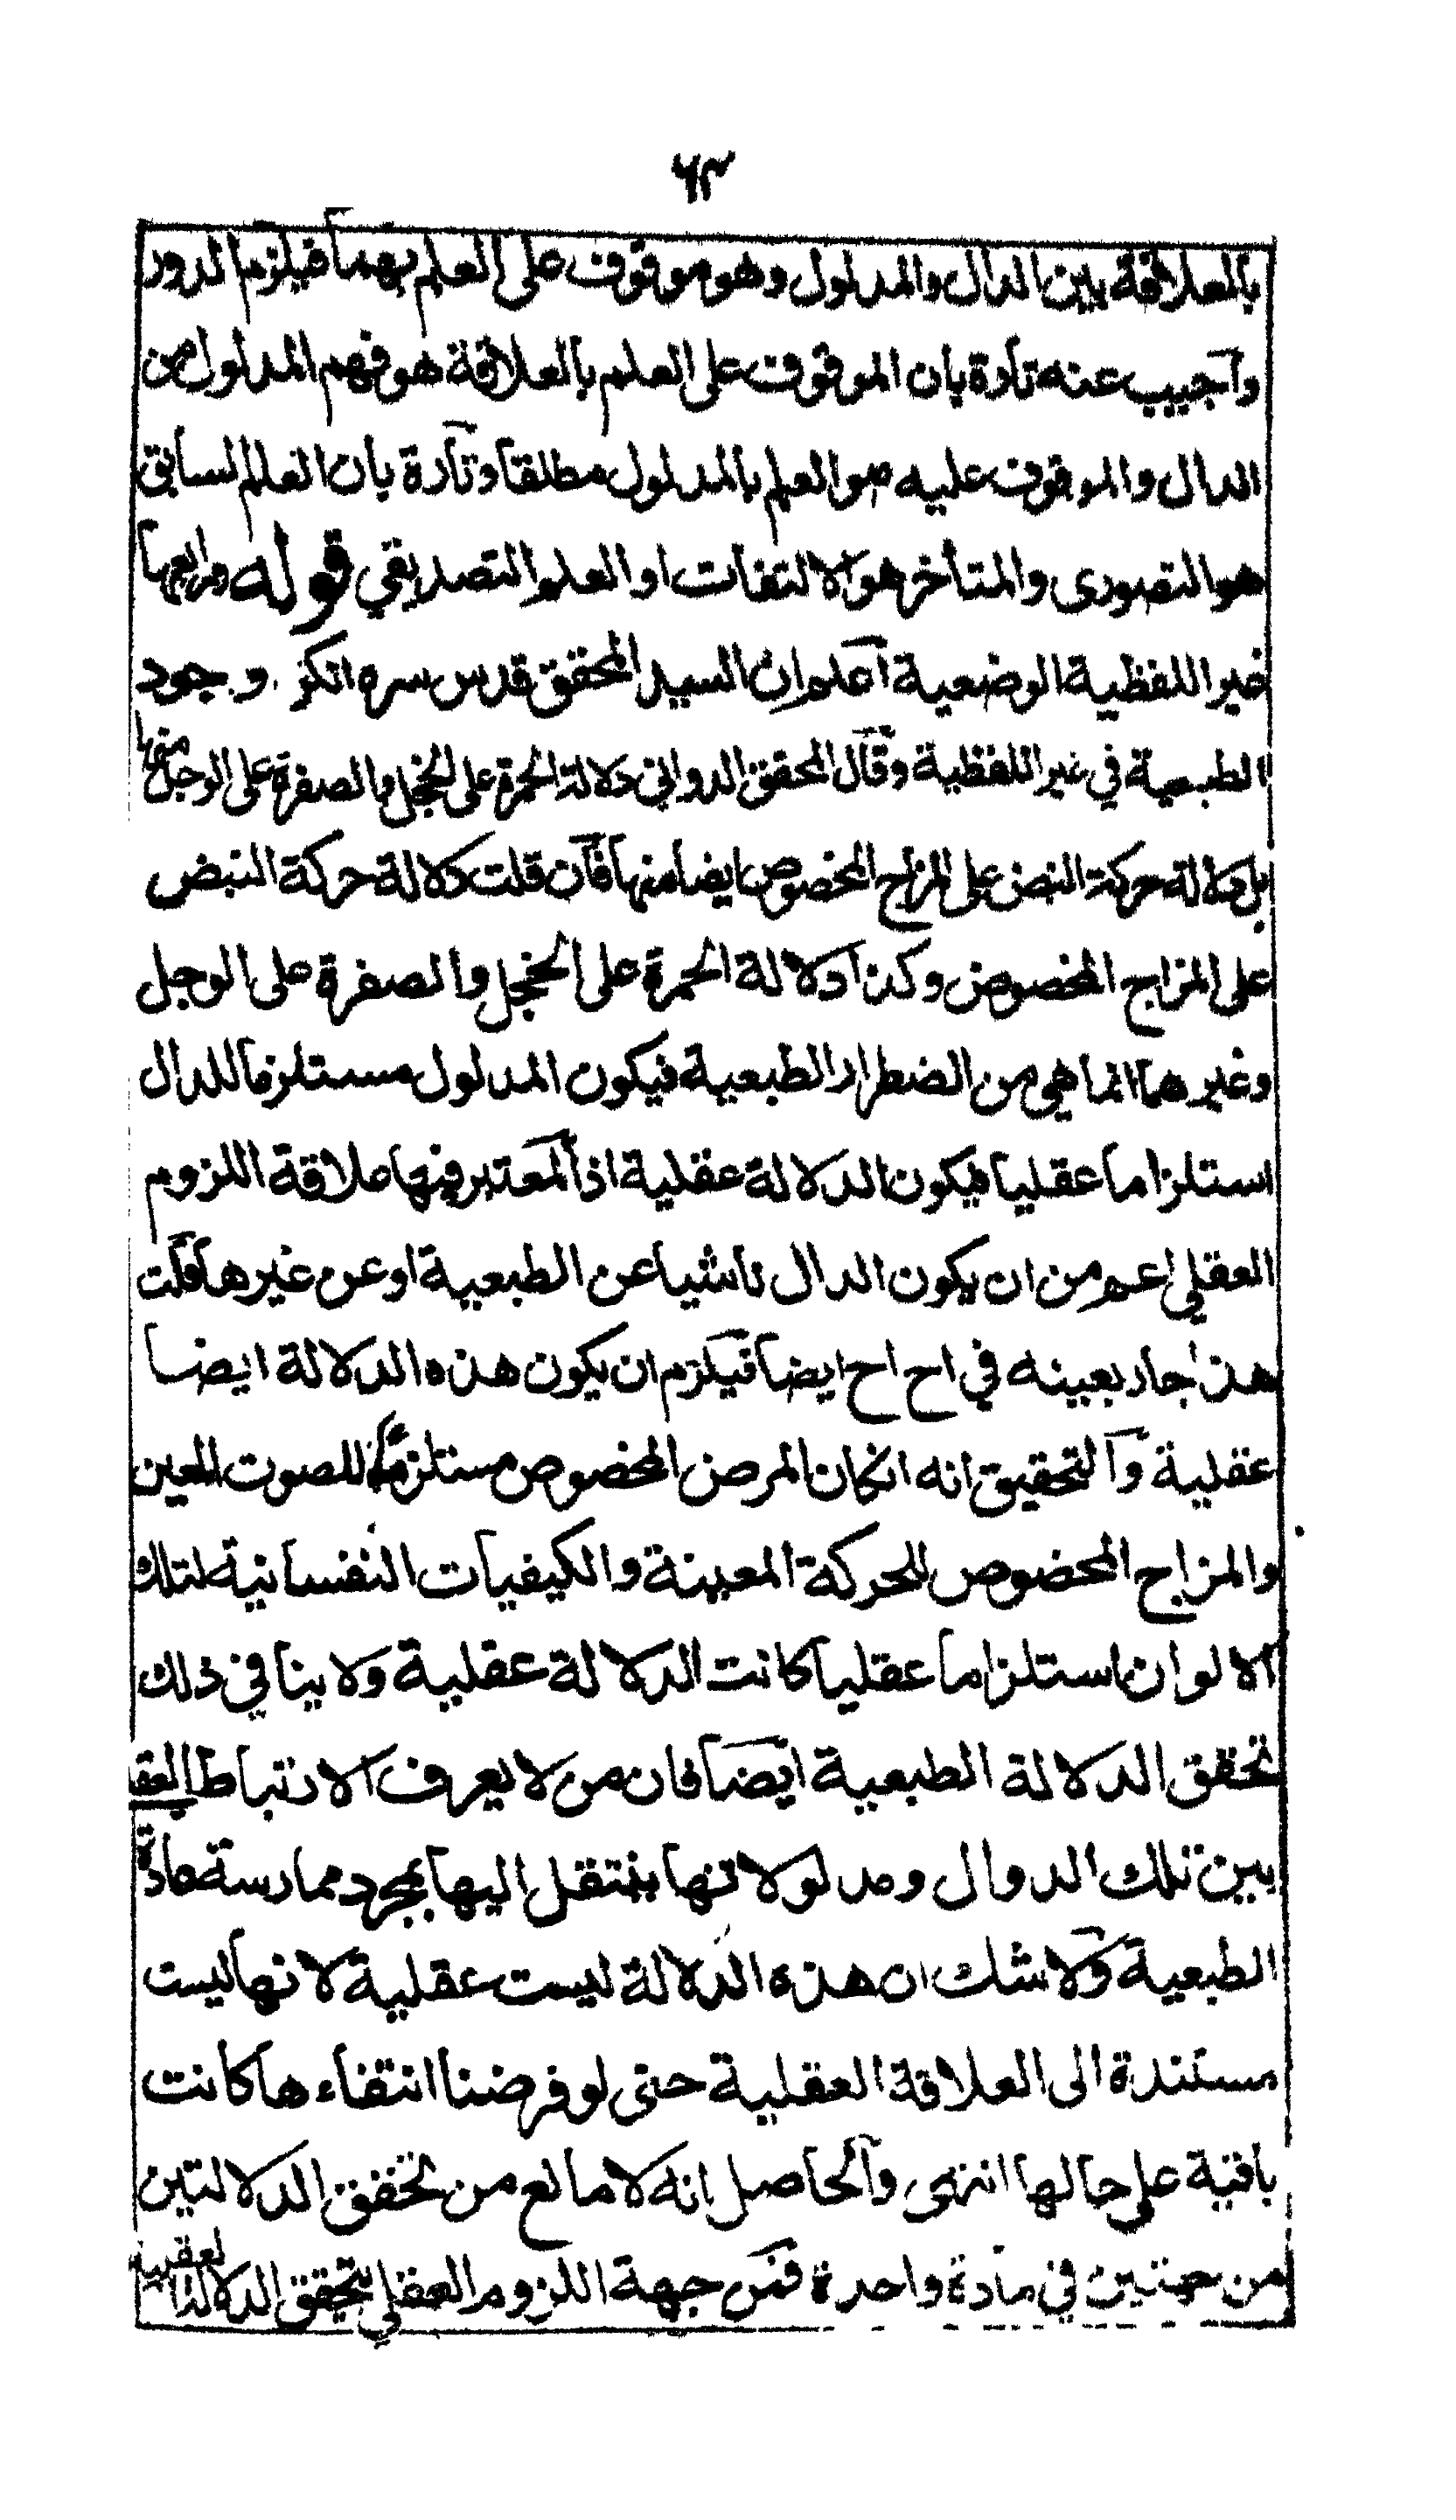 ٦٣
بالعلاقة بين الدال والمدلول وهو موقوف على العلم بهما فيلزم الدور
وآجيب عنه تارة بان الموقوف على العلم بالعلاقة هو فهم المدلول من
الدال والموقوف عليه هو العلم بالمدلول مطلقا وتارة بان العلم السابق
هو التصورى والمتأخر هو الالتفات او العلم التصديقي قوله ورابعها
غير اللفظية الوضعية آعلم ان السيد المحقق قدس سره انكر وجود
الطبعية في غير اللفظية وقال المحقق الدواني دلالة الحمرة على الخجل والصفرة على الوجل منها
بل دلالة حركة النبض على المزاج المخصوص ايضا منها فآن قلت دلالة حركة النبض
على المزاج المخصوص وكذا دلالة الحمرة على الخجل والصفرة على الوجل
وغيرهما انما هي من اضطرار الطبعية فيكون المدلول مستلزما للدال
استلزاما عقليا فيكون الدلالة عقلية اذ المعتبر فيها علاقة اللزوم
العقلي اعم من ان يكون الدال ناشيا عن الطبعية او عن غيرها قلت
هذا جار بعينه في اح اح ايضا فيلزم ان يكون هذه الدلالة ايضا
عقلية وآلتحقيق انه انكان المرض المخصوص مستلزما للصوت المعين
والمزاج المخصوص للحركة المعينة والكيفيات النفسانية لتلك
الالوان استلزاما عقليا كانت الدلالة عقلية ولا ينافي ذلك
تحقق الدلالة الطبعية ايضا فان من لا يعرف الارتباط العق
بين تلك الدوال ومدلولاتها ينتقل اليها بمجرد ممارسة عادة
الطبعية ولا شك ان هذه الدلالة ليست عقلية لانها ليست
مستندة الى العلاقة العقلية حتى لو فرضنا انتفاءها كانت
باقية على حالها انتهى وآلحاصل انه لا مانع من تحقق الدلالتين
من جهتين في مادة واحدة فمن جهة اللزوم العقلي يتحقق الدلالة